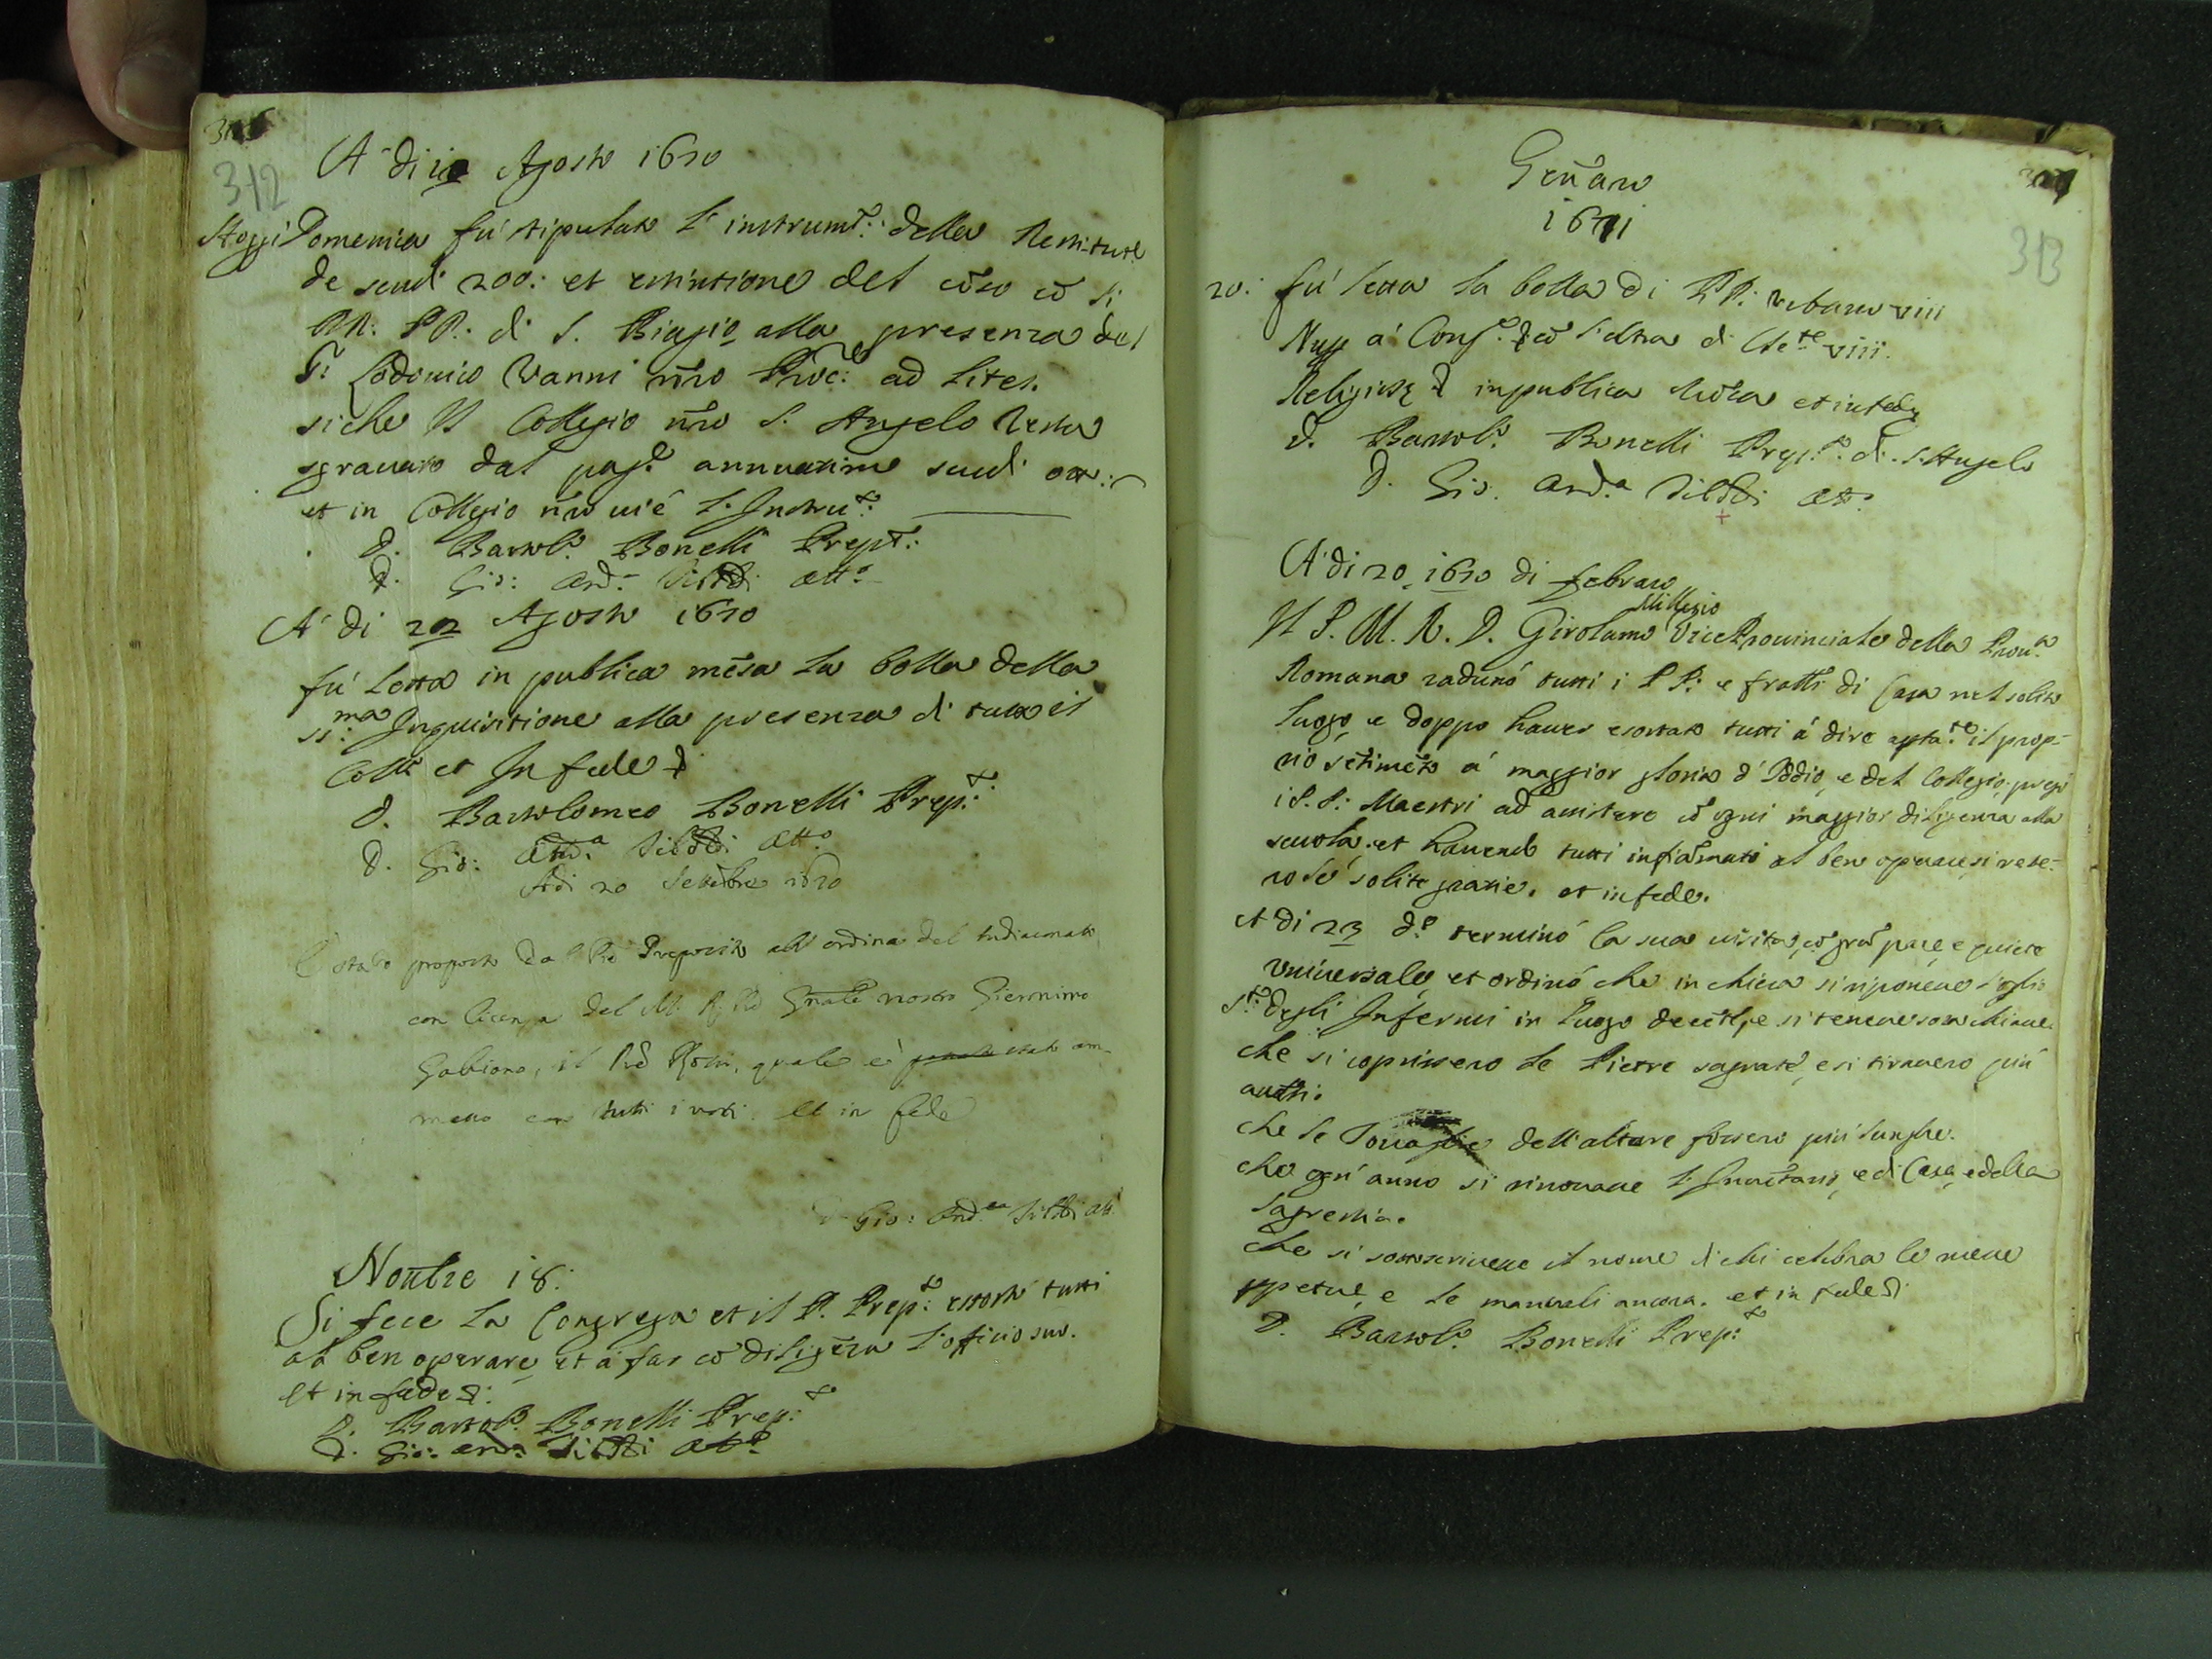 312
A di Agosto 1670
Hoggi Domenica fu stipulato l'instrumt.o della
de scudi 200: et estintione del cẽso cõ li
RR: PP: di S. Biagio alla presenza del
S.r Lodovico Vanni nr̃o Proc.e ad lites.
siche Il Collegio nr̃o S. Angelo resta
sgravato dal pag.o annuatim scudi
et in Collegio nr̃o vi é l'Instru.to
D. Bartol.o Bonelli Prep.to:
D. Gio: And.a att.o
A di 22 Agosto 1670
fu letta in publica mẽsa la bolla della
SS.ma Inquisitione alla presenza di tutto il
Coll.o et In fede
D. Bartolomeo Bonelli Prep.to
D. Gio: And.a att.o
Adi 20 Settẽbre 1670
É stato proposto dal P̃re Preposito all'ordine del
con licenza del M. R. P̃re Gñale nostro Gieronimo
Gabiano, il P̃re quale é stato am-
messo con tutti i voti. Et in fede
Gio: And.ea att.
Novẽbre 18.
Si fece la Congrega et il P. Prep.to essortó tutti
al ben operare, et á far cõ diligẽza l'officio suo.
et in fede
D. Bartol.o Bonelli Prep.to
D. Gio: And.a att.o
313
Geñaro
1671
20. fu letta la bolla di PP: Urbano VIII
cõ l'altra di Cle.te VIII.
in publica et in fede
D. Bartol.o Bonelli Prep.to di S. Angelo
D. Gio. And.a att.o
A di 20 1670 di febraro
Millesio
Il P. M. R. D. Girolamo Vice Provinciale della Prov.a
Romana radunó tutti i PP: e fratt.i di Casa nel solito
luogo, e doppo haver esortato tutti á dire il prop-
rio sẽtimẽto á maggior gloria d'Iddio, e del Collegio, pregó
i P.P: Maestri ad assistere cõ ogni maggior diligenza alla
scuola, et havendo tutti infiãmati al ben operare, si rese-
ro le solite gratie. et in fede.
A di 23 d.o terminó la sua visita, cõ grã pace, e quiete
universale, et ordinó che in chiesa si riponesse l'oglio
S.to degli Infermi in luogo decẽte, e si tenesse sotto chiave.
che si coprissero le Pietre sagrate, e si tirassero più
avãti.
che le Tovaglie dell'altare fossero più lunghe.
che ogn'anno si rinovasse l'Invẽtario, e di Casa, e della
Sagrestia.
che si sottoscrivesse il nome di chi celebra le messe
ppetue, e le manuali ancora. et in fede
D. Bartol.o Bonelli Prep.to